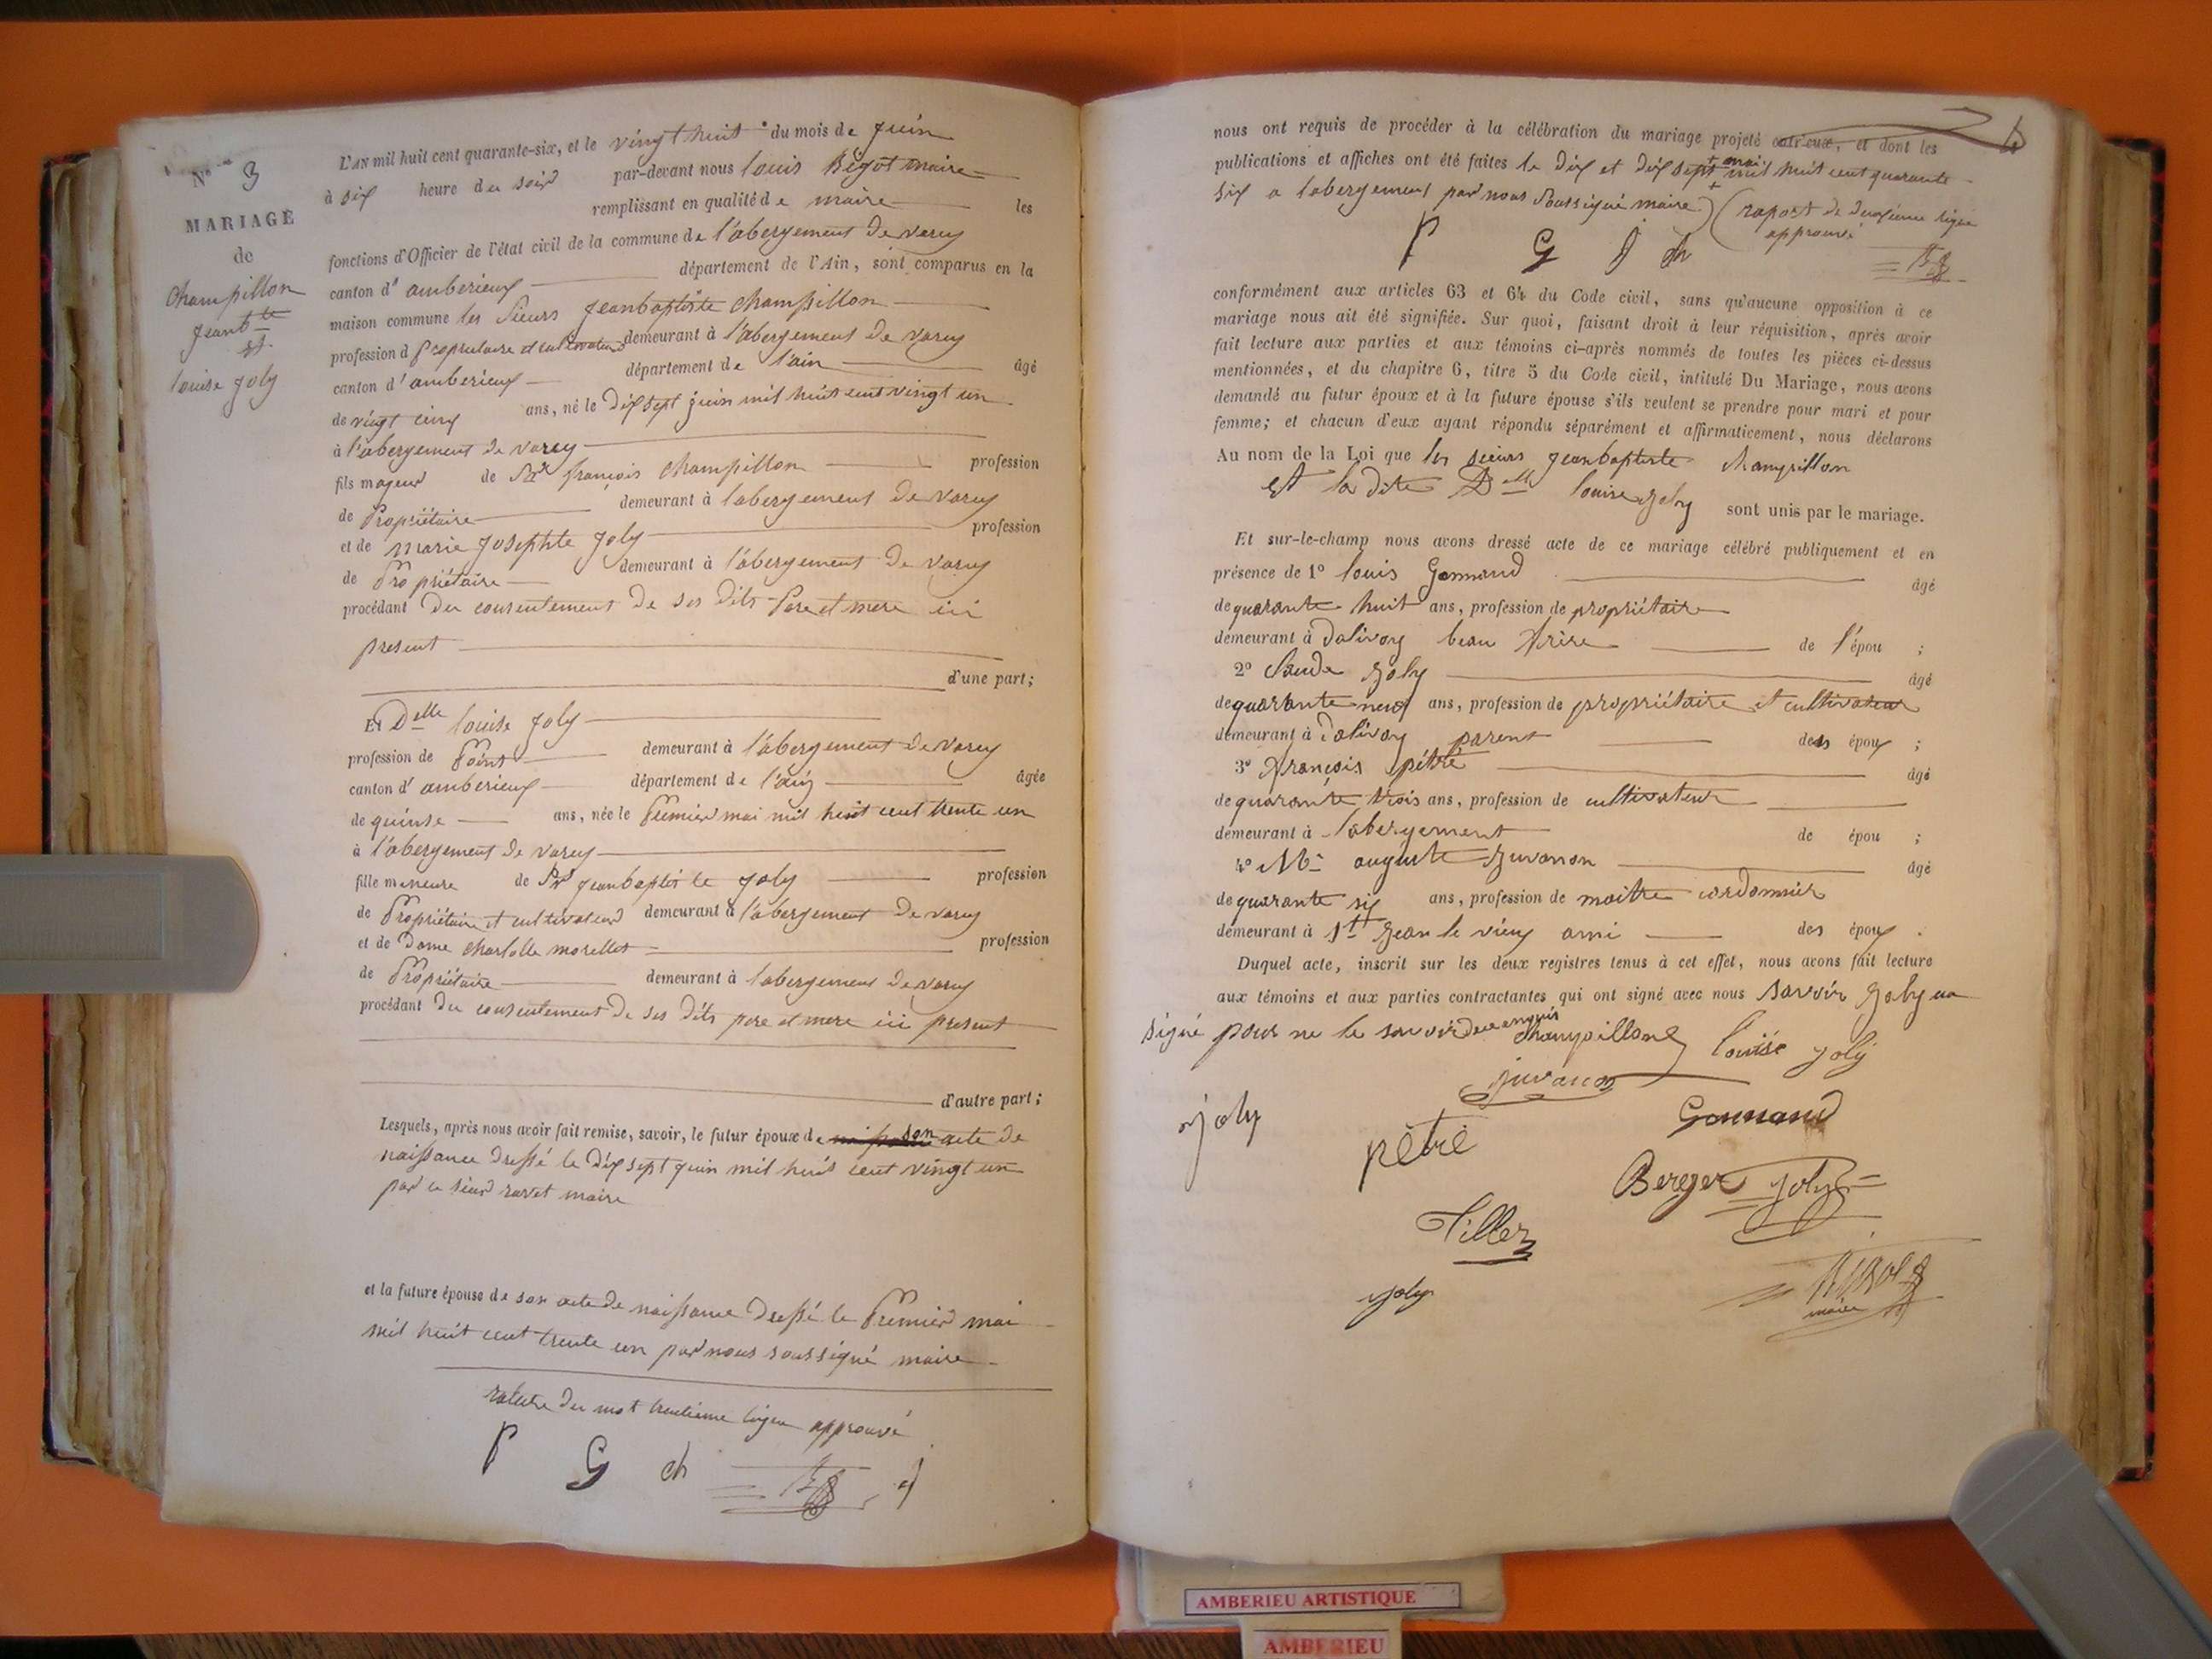 N° 3
MARIAGE
de
Champillon
Jean bte
et
louise joly
L'AN mil huit cent quarante-six, et le vingt huit du mois de juin
à six heure du soir par-devant nous louis Bigot maire
remplissant en qualité de maire les
fonctions d'Officier de l'état civil de la commune de l'abergement de varey
canton d' amberieux département de l'Ain, sont comparus en la
maison commune les Sieurs jeanbaptiste champillon
profession d propriétaire et cultivateur demeurant à l'abergement de varey
canton d' amberieux département de l'ain âgé
de vingt cinq ans, né le dix sept juin mil huit cent vingt un
à l'abergement de varey
fils majeur de Sr françois champillon profession
de Propriétaire demeurant à labergement de varey
et de marie josephte joly profession
de Propriétaire demeurant à l'abergement de varey
procédant du consentement de ses dits Pere et mere ici
present
d'une part;
Et Delle louise joly
profession de Point demeurant à l'abergement de varey
canton d' amberieux département de l'ain âgée
de quinse ans, née le Premier mai mil huit cent trente un
à l'abergement de varey
fille mineure de Sr jeanbaptiste joly profession
de Propriétaire et cultivateur demeurant à l'abergement de varey
et de Dame charlotte morellet profession
de Propriétaire demeurant à labergement de varey
procédant du consentement de ses dits pere et mere ici present
d'autre part;
Lesquels, après nous avoir fait remise, savoir, le futur époux de son acte de
naissance dressé le dix sept juin mil huit cent vingt un
par le sieur ravet maire
et la future épouse de son acte de naissance dressé le Premier mai
mil huit cent trente un par nous soussigné maire
rature du mot trentieme ligne approuvé
P G ch B j
nous ont requis de procéder à la célébration du mariage projeté entr'eux, et dont les
publications et affiches ont été faites le dix et dix sept + mai mil huit cent quarante
six a labergement par nous soussigné maire (raport de deuxieme ligne
approuvé
P G j ch B
conformément aux articles 63 et 64 du Code civil, sans qu'aucune opposition à ce
mariage nous ait été signifiée. Sur quoi, faisant droit à leur réquisition, après avoir
fait lecture aux parties et aux témoins ci-après nommés de toutes les pièces ci-dessus
mentionnées, et du chapitre 6, titre 5 du Code civil, intitulé Du Mariage, nous avons
demandé au futur époux et à la future épouse s'ils veulent se prendre pour mari et pour
femme; et chacun d'eux ayant répondu séparément et affirmativement, nous déclarons
Au nom de la Loi que les sieurs jeanbaptiste champillon
et la dite Delle louise joly sont unis par le mariage.
Et sur-le-champ nous avons dressé acte de ce mariage célébré publiquement et en
présence de 1° louis Gonnand âgé
de quarante huit ans, profession de propriétaire
demeurant à dalivoy beau frère de l'épou ;
2° Claude joly âgé
de quarante neuf ans, profession de propriétaire et cultivateur
demeurant à dalivoy parent des époux ;
3° françois pétré âgé
de quarante trois ans, profession de cultivateur
demeurant à labergement de épou ;
4° Mr auguste juvanon âgé
de quarante six ans, profession de maitre cordonnier
demeurant à St jean le vieux ami des époux .
Duquel acte, inscrit sur les deux registres tenus à cet effet, nous avons fait lecture
aux témoins et aux parties contractantes qui ont signé avec nous savoir joly na
signé pour ne le savoir de ce enquis
champillon louise joly
juvanon
joly Gonnand
pétré
Berger joly
Tiller
joly
Bigot
maire
AMBERIEU ARTISTIQUE
AMBERIEU